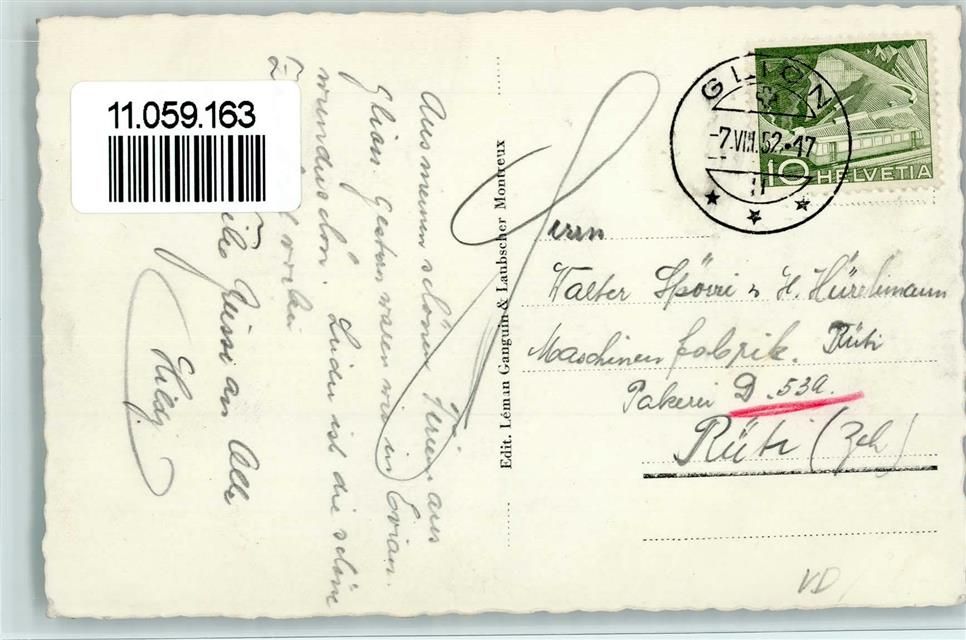 11.059.163
Aus meinen schönen Ferien aus
Glion. Gestern waren wir in Evian.
wunderschön. Leider ist die schöne
Z vorbei
Viele Grüsse an Alle
Hildy.
Edit. Léman Ganguin & Laubscher Montreux
GLION
-7.VIII.52.-17
10 HELVETIA
Herrn
Walter Spörri & H. Hürlimann
Maschinenfabrik. Rüti
Pakerei D. 53a.
Rüti (Zch)
VD